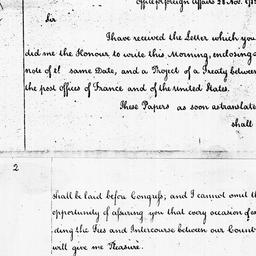 Office for foreign Affairs 28 Nov. 178
Sir
I have received the Letter which you
did me the Honour to write this Morning, enclosing a
note of the same Date, and a Project of a Treaty between
the post offices of France and of the United States.
These Papers as soon as translate
shall
2
shall be laid before Congress; and I cannot omit th
opportunity of assuring you that every occasion of ex
ding the Ties and Intercourse between our Count
will give me Pleasure.